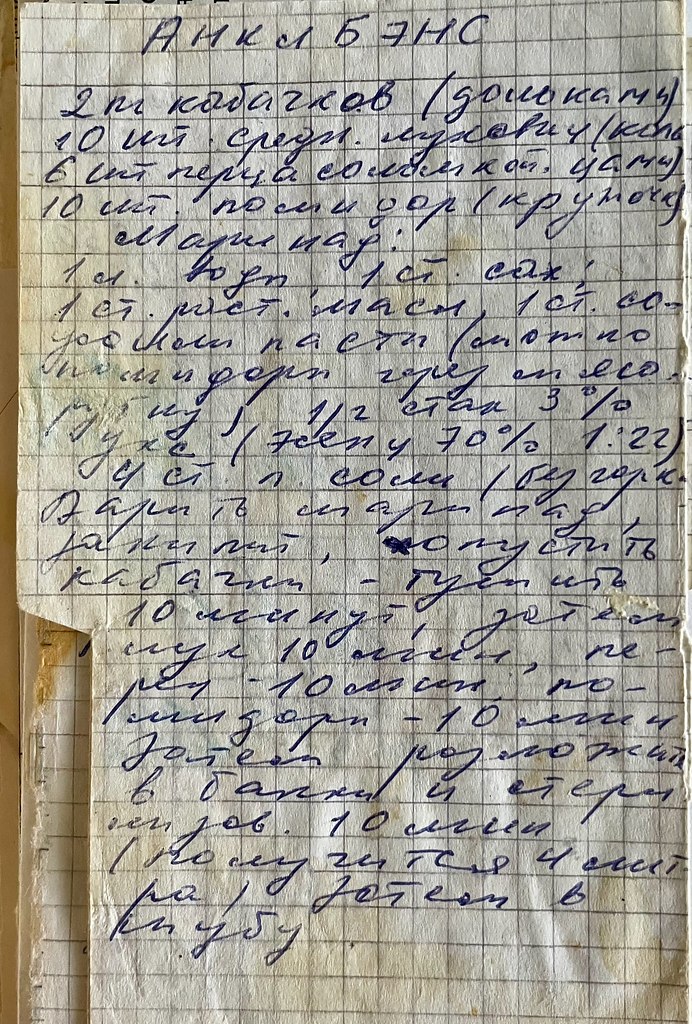 Анкл Бэнс
2 кг кабачков (дольками)
10 шт. средн. луковиц (коль
6 шт перца соломкой. цами)
10 шт. помидор (кружочк)
Маринад:
1 л. воды, 1 ст. сах,
1 ст. раст. масл, 1 ст. то-
матн пасты (можно
помидоры через мясо-
рубку), 1/2 стак 3%
укс (эссенц 70% 1:22)
4 ст. л. соли (бугорк.
Варить маринад,
закипит, опустить
кабачки - тушить
10 минут, затем
лук 10 мин, пе-
рец - 10 мин, по-
мидоры - 10 мин
Затем разложить
в банки и стери
лизов. 10 мин
(получится 4 лит-
ра), Затем в
шубу